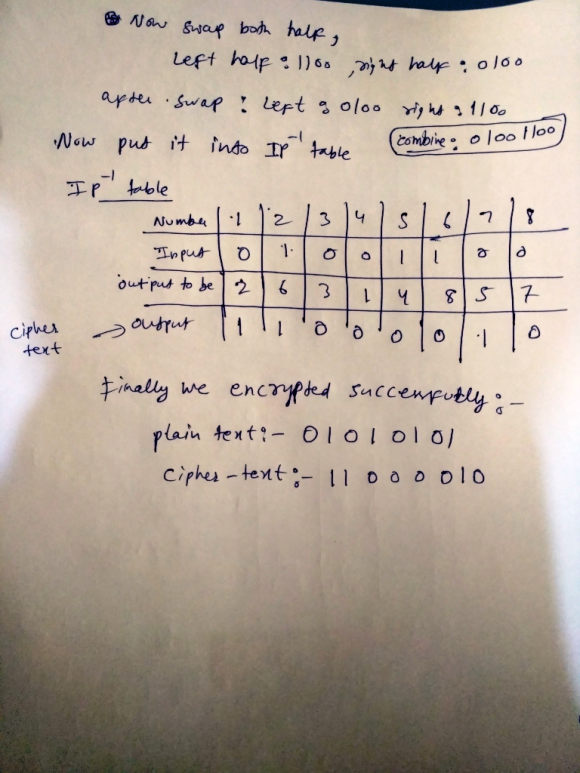 Now swap both half,
Left half : 1100 , right half : 0100
after swap : Left : 0100 right : 1100
Now put it into IP⁻¹ table
combine : 01001100
IP⁻¹ table
Number 1 2 3 4 5 6 7 8
Input 0 1 0 0 1 1 0 0
output to be 2 6 3 1 4 8 5 7
cipher text → output 1 1 0 0 0 0 1 0
Finally we encrypted successfully :-
plain text :- 01010101
Cipher-text :- 11000010